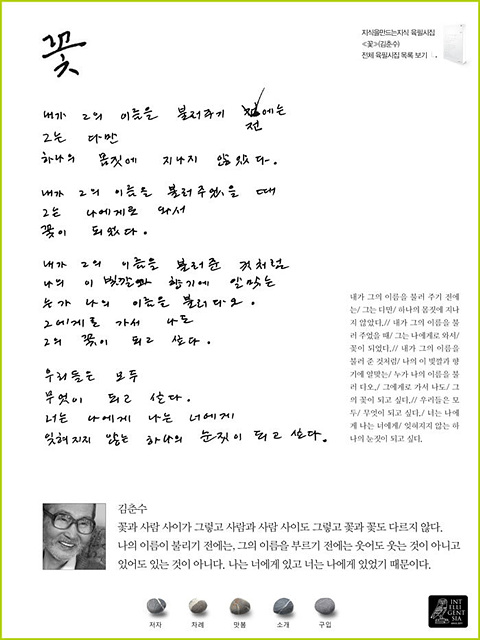 꽃
지식을만드는지식 육필시집
<꽃>(김춘수)
전체 육필시집 목록 보기
내가 그의 이름을 불러주기 전에는
그는 다만
하나의 몸짓에 지나지 않았다.
내가 그의 이름을 불러주었을 때
그는 나에게로 와서
꽃이 되었다.
내가 그의 이름을 불러준 것처럼
나의 이 빛깔과 향기에 알맞는
누가 나의 이름을 불러다오.
그에게로 가서 나도
그의 꽃이 되고 싶다.
우리들은 모두
무엇이 되고 싶다.
너는 나에게 나는 너에게
잊혀지지 않는 하나의 눈짓이 되고 싶다.
내가 그의 이름을 불러 주기 전에
는/ 그는 다만/ 하나의 몸짓에 지나
지 않았다.// 내가 그의 이름을 불
러 주었을 때/ 그는 나에게로 와서/
꽃이 되었다.// 내가 그의 이름을
불러 준 것처럼/ 나의 이 빛깔과 향
기에 알맞는/ 누가 나의 이름을 불
러 다오./ 그에게로 가서 나도/ 그
의 꽃이 되고 싶다.// 우리들은 모
두/ 무엇이 되고 싶다./ 너는 나에
게 나는 너에게/ 잊혀지지 않는 하
나의 눈짓이 되고 싶다.
김춘수
꽃과 사람 사이가 그렇고 사람과 사람 사이도 그렇고 꽃과 꽃도 다르지 않다.
나의 이름이 불리기 전에는, 그의 이름을 부르기 전에는 웃어도 웃는 것이 아니고
있어도 있는 것이 아니다. 나는 너에게 있고 너는 나에게 있었기 때문이다.
저자 차례 맛봄 소개 구입
INT
ELLI
GENT
SIA